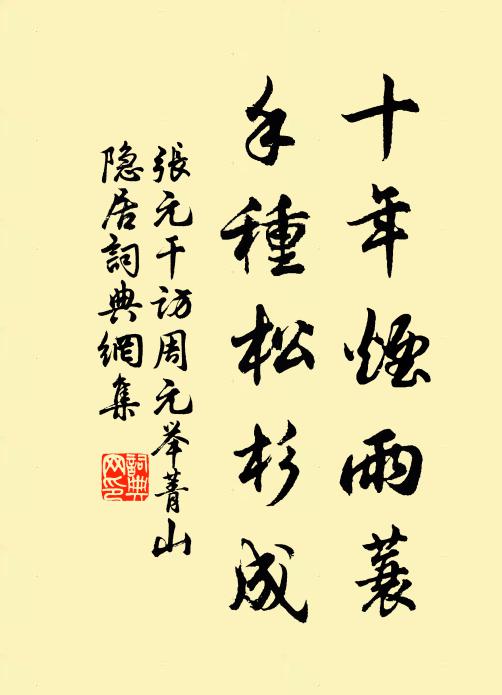 十年煙雨蓑
手種松杉成
張元干訪周元举菁山
隐居詞典網集
詞典网印